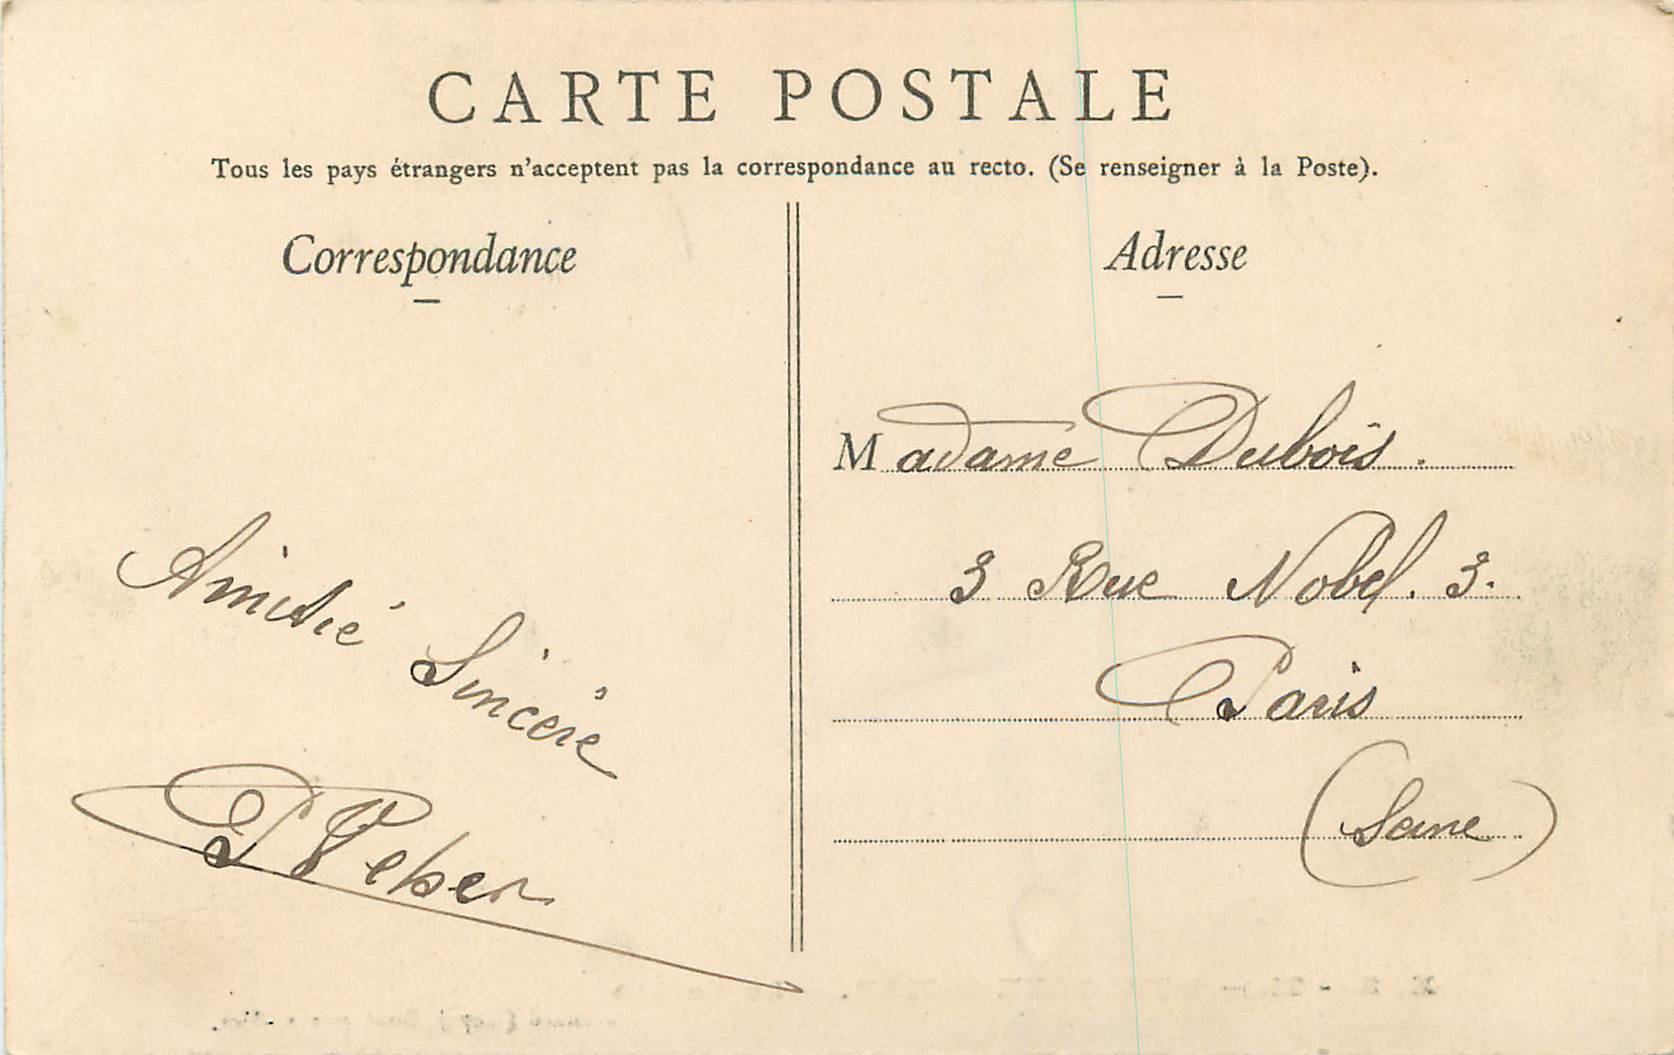 CARTE POSTALE
Tous les pays étrangers n'acceptent pas la correspondance au recto. (Se renseigner à la Poste).
Correspondance
Amitié Sincère
Adresse
Madame Dubois.
3 Rue Nobel. 3.
Paris
(Seine)